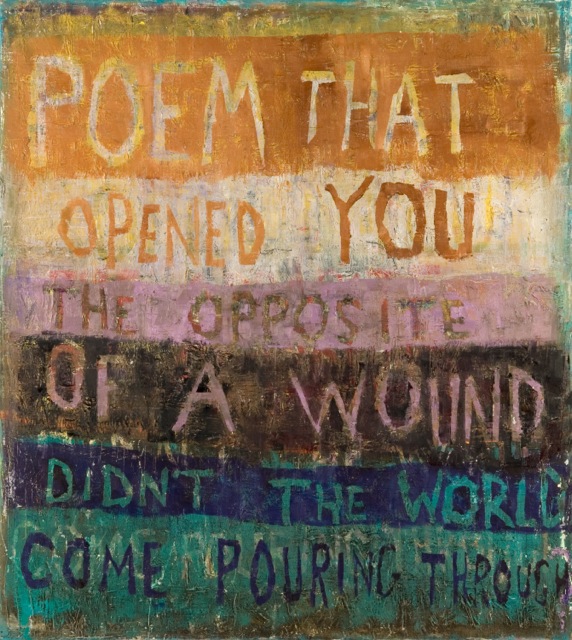 POEM THAT
OPENED YOU
THE OPPOSITE
OF A WOUND
DIDN'T THE WORLD
COME POURING THROUGH